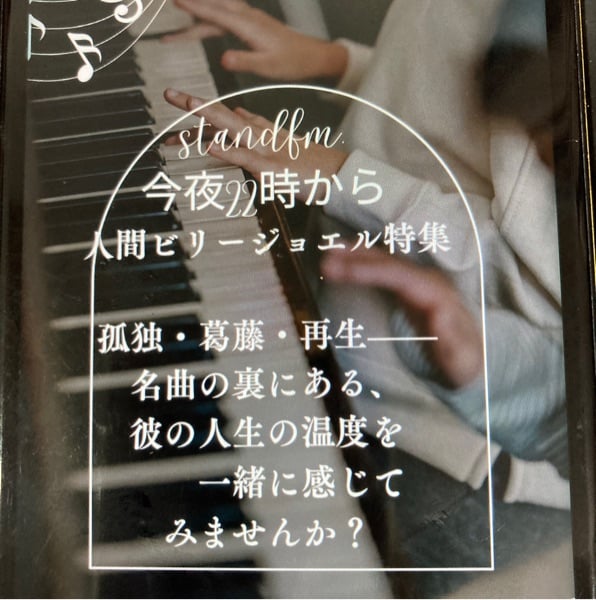 standfm.
今夜22時から
人間ビリージョエル特集
孤独・葛藤・再生――
名曲の裏にある、
彼の人生の温度を
一緒に感じて
みませんか？